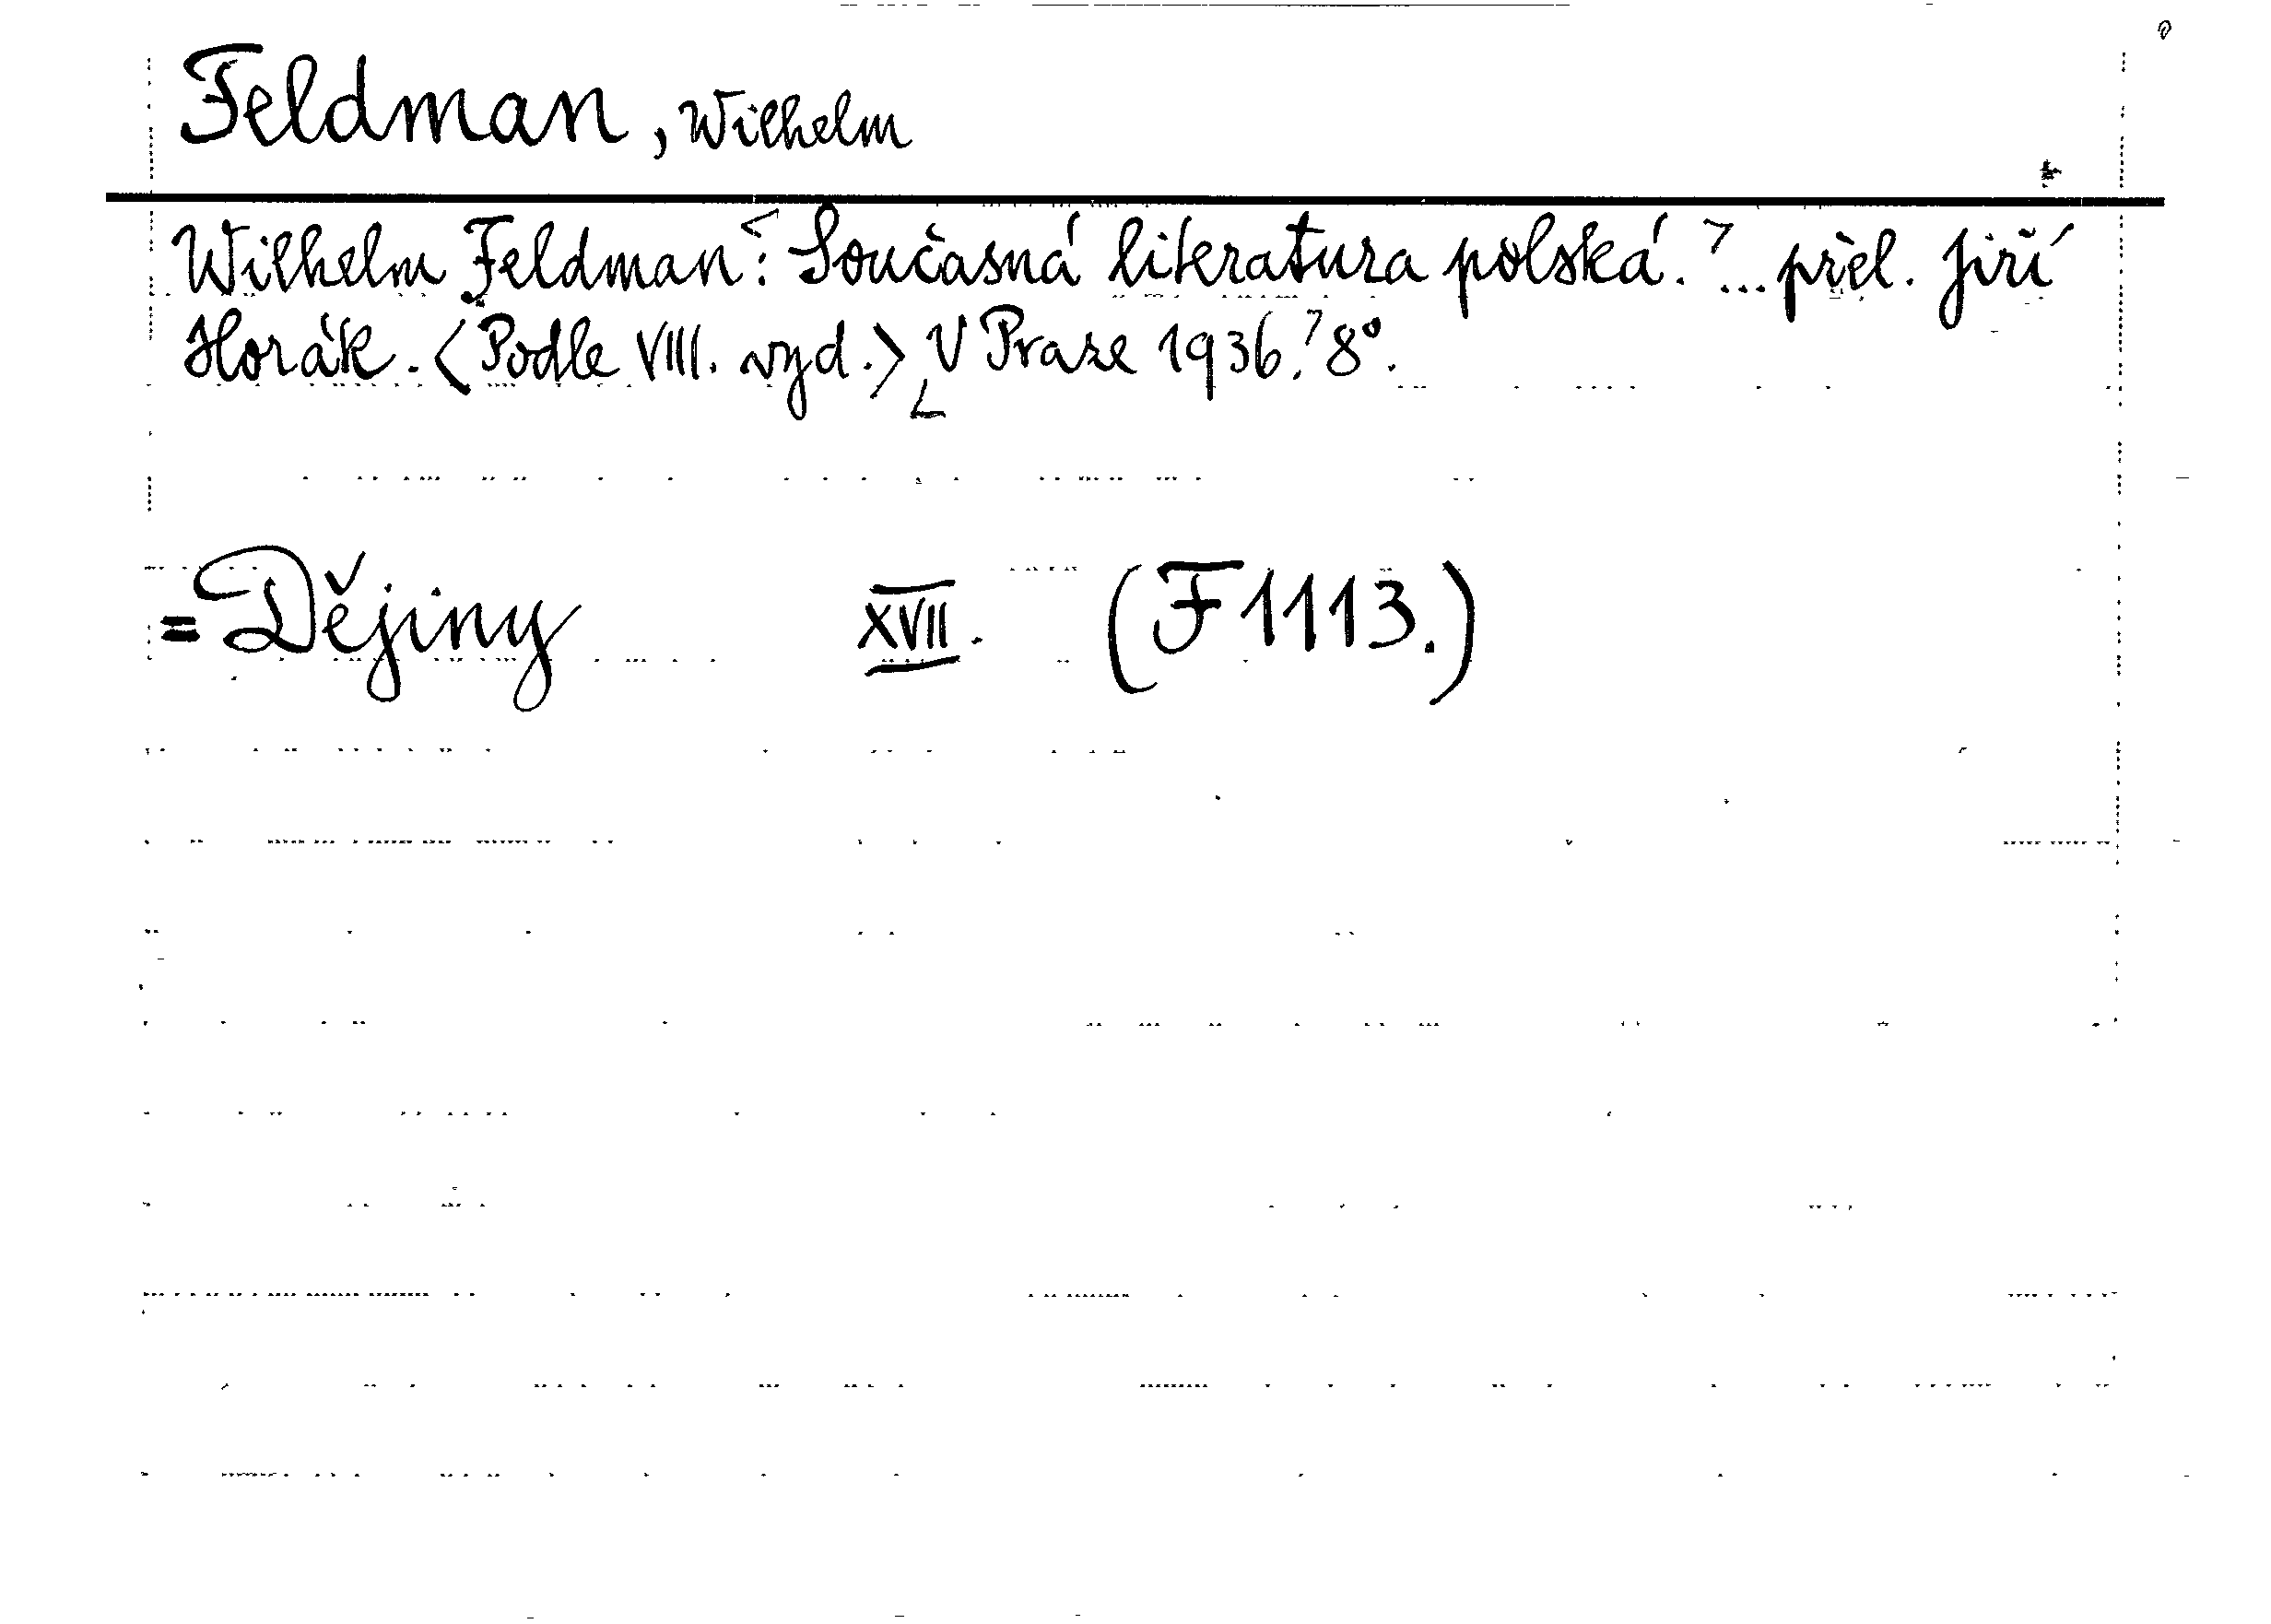 Feldman, Wilhelm
Wilhelm Feldman<: Současná literatura polská.> ... přel. Jiří
Horák. <Podle VIII. vyd.> <V Praze 1936.> 8°.
=Dějiny XVII. (F 1113.)